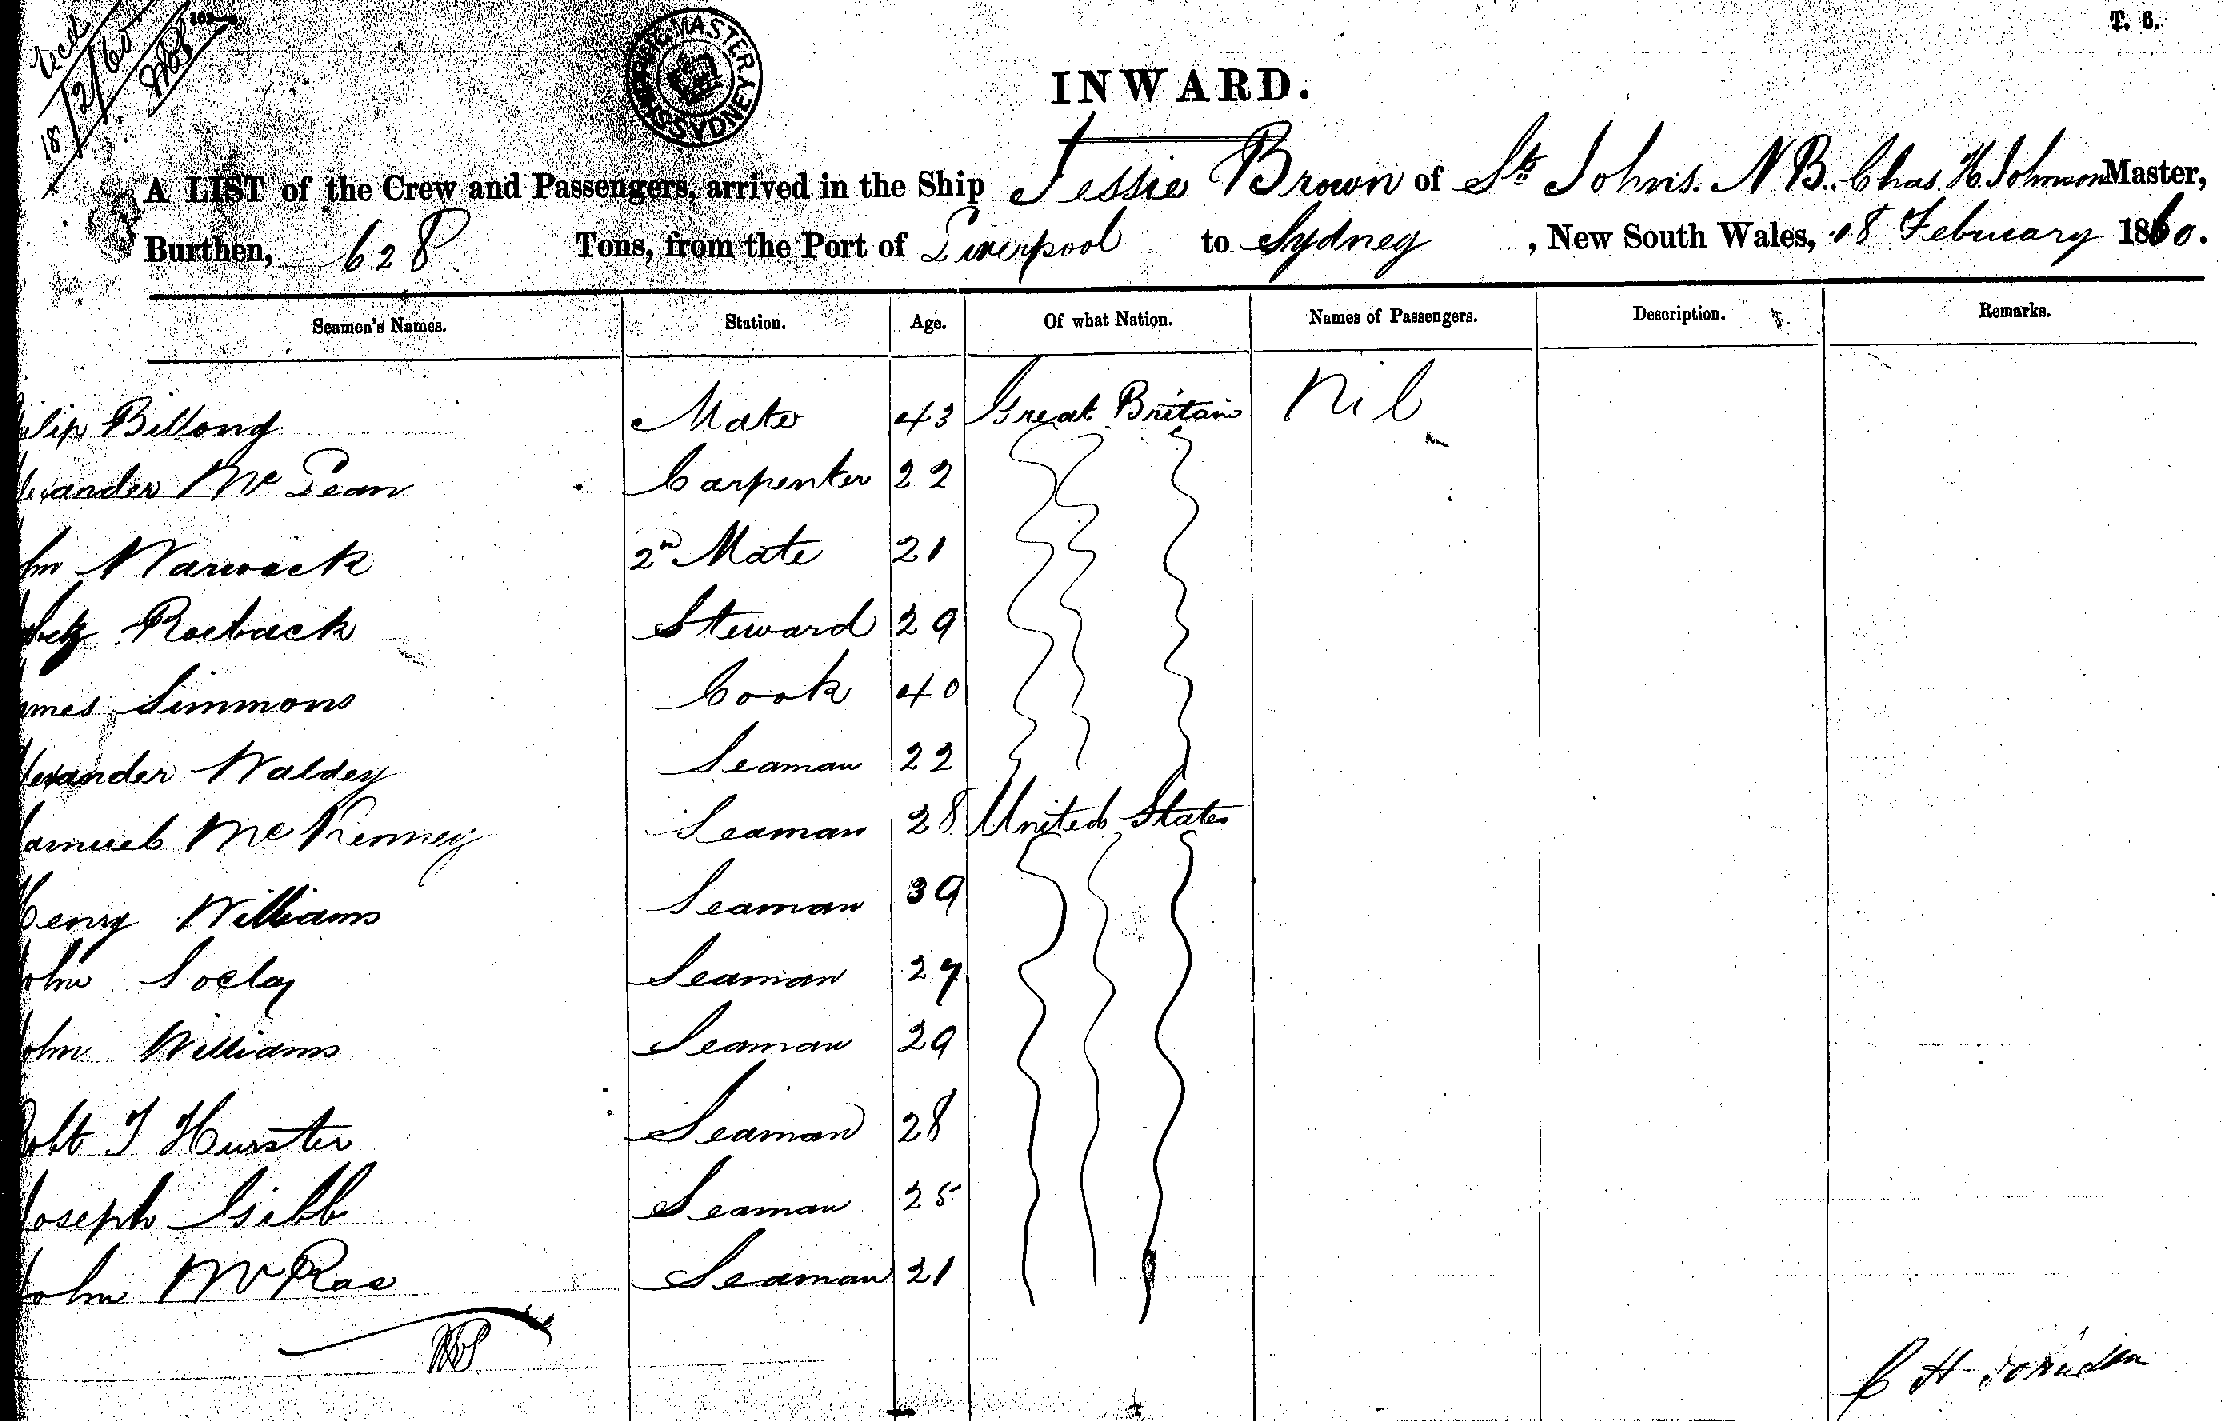 T. 6.
18/2/60
SYDNEY
INWARD.
A LIST of the Crew and Passengers, arrived in the Ship Jessie Brown of St Johns. N B. Chas H Johnson Master,
Burthen, 628 Tons, from the Port of Liverpool to Sydney, New South Wales, 18 February 1860.
Seamen's Names. Station. Age. Of what Nation. Names of Passengers. Description. Remarks.
ilip Billong Mate 43 Great Britain Nil
lexander Mc Lean Carpenter 22
hn Warwick 2n Mate 21
Roeback Steward 29
ames Simmons Cook 40
lexander Walden Seaman 22
amuel Mc Kenney Seaman 28 United States
Henry Williams Seaman 39
John Seaman 27
John Williams Seaman 29
Robt J Hurster Seaman 28
Joseph Gibb Seaman 25
John McRae Seaman 21
C H Johnson